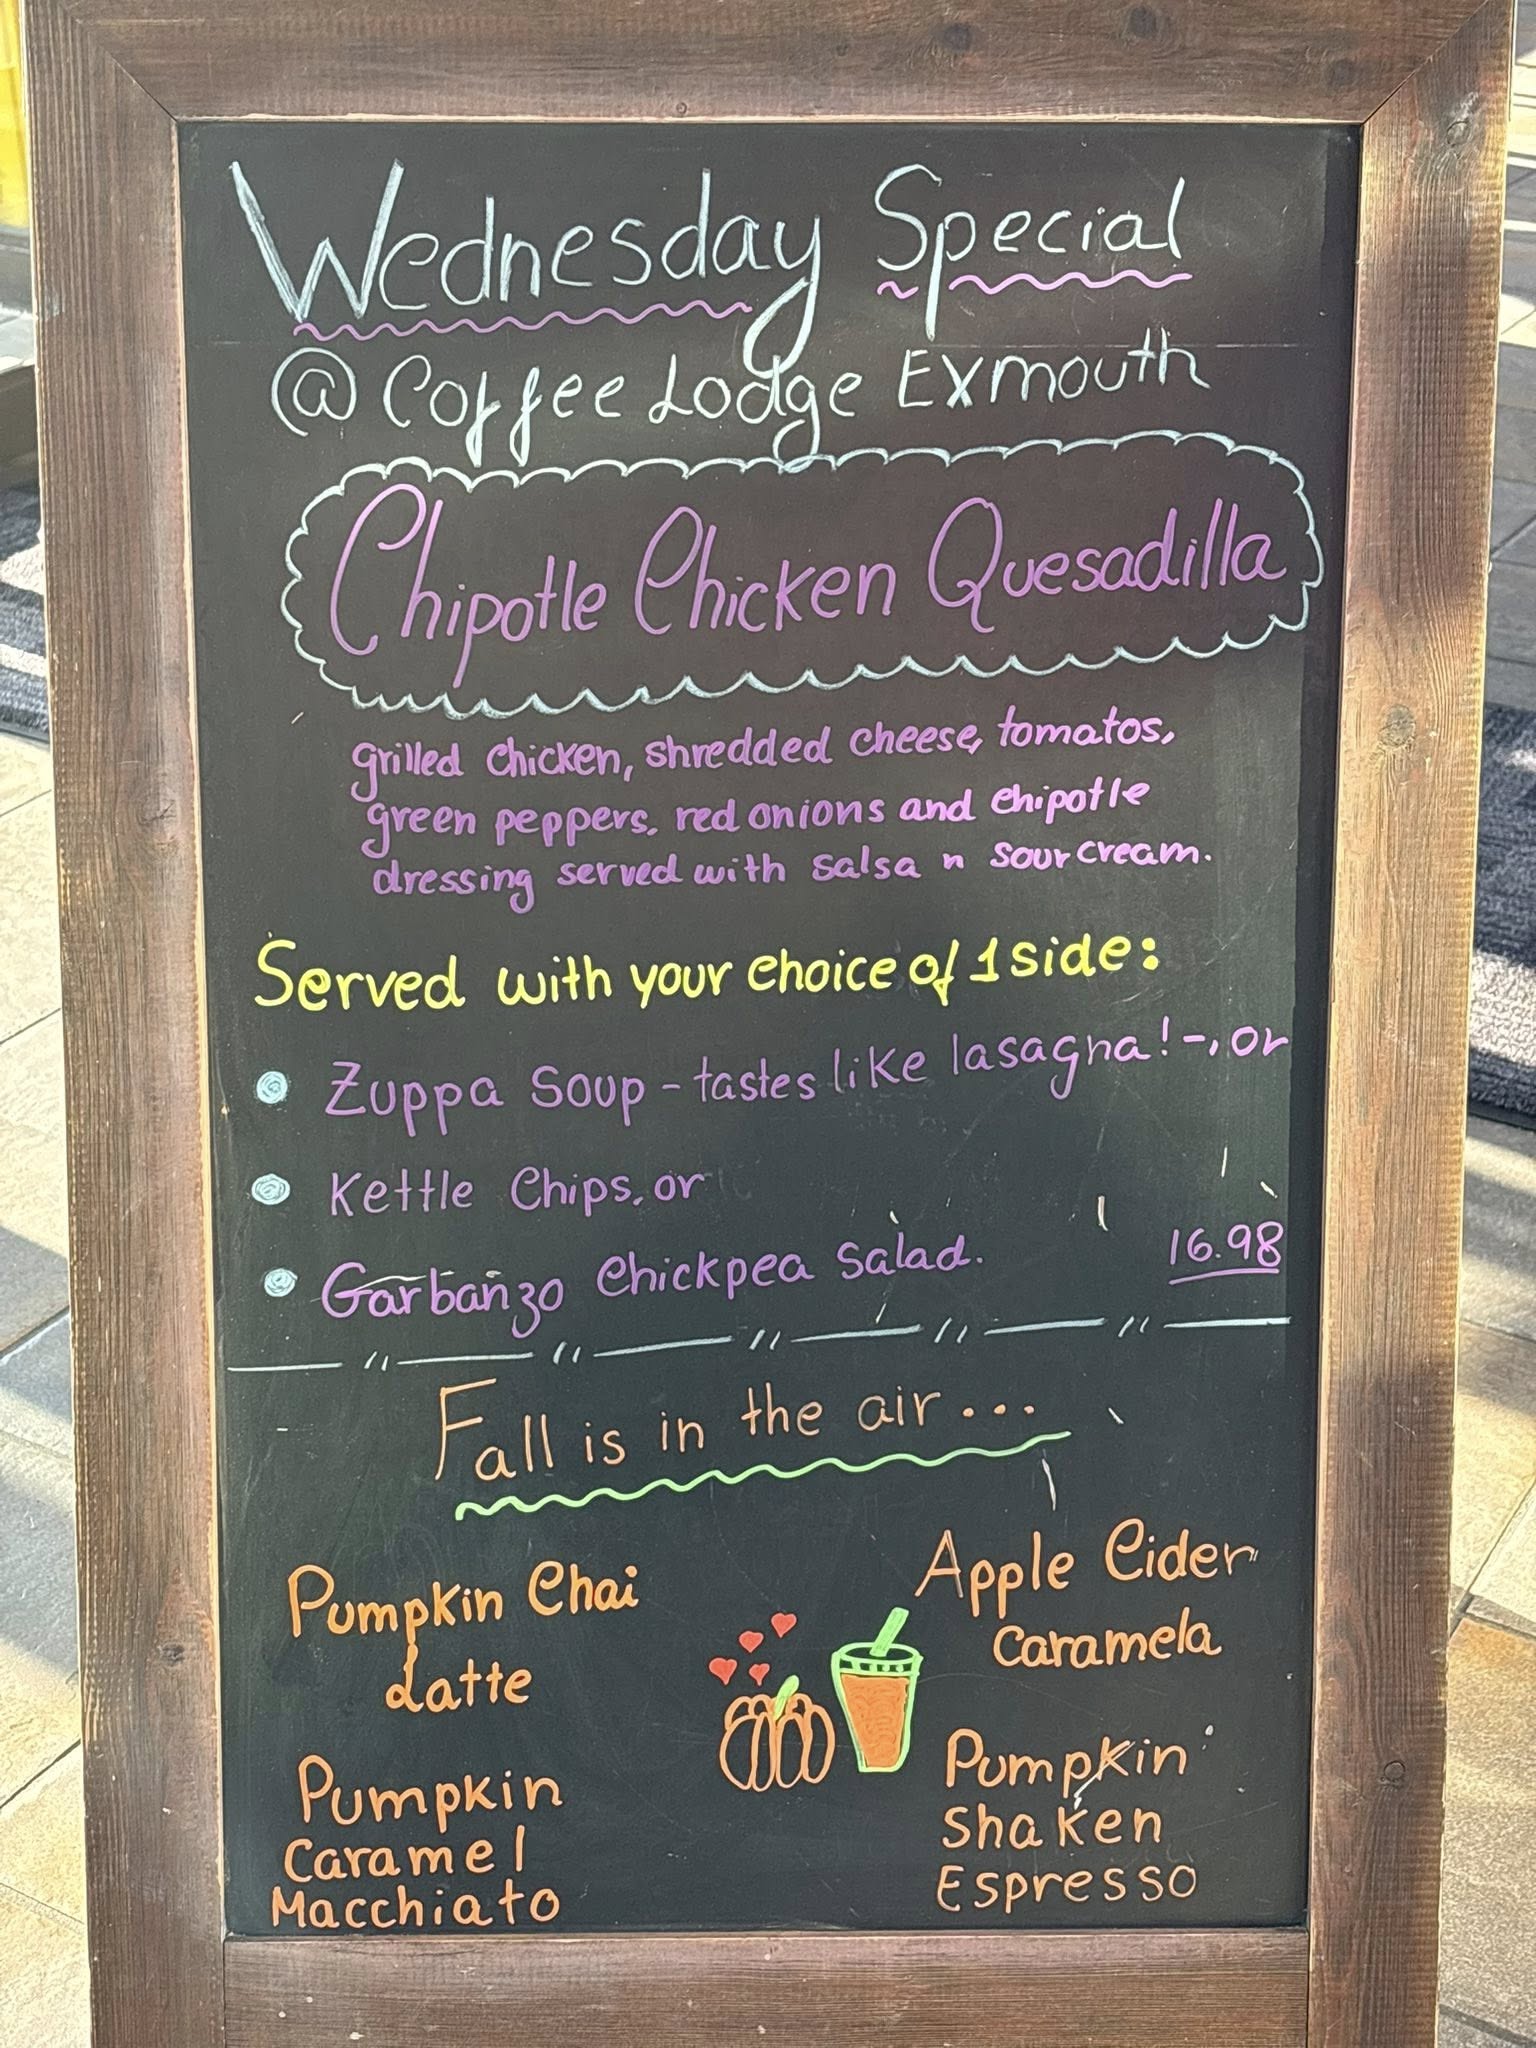 Wednesday Special
@ Coffee Lodge Exmouth
Chipotle Chicken Quesadilla
grilled chicken, shredded cheese, tomatos,
green peppers, red onions and chipotle
dressing served with salsa n sour cream.
Served with your choice of 1 side:
Zuppa Soup - tastes like lasagna! -, or
Kettle Chips, or
Garbanzo Chickpea Salad.
16.98
Fall is in the air...
Pumpkin Chai
Latte
Apple Cider
Caramela
Pumpkin
Caramel
Macchiato
Pumpkin
Shaken
Espresso